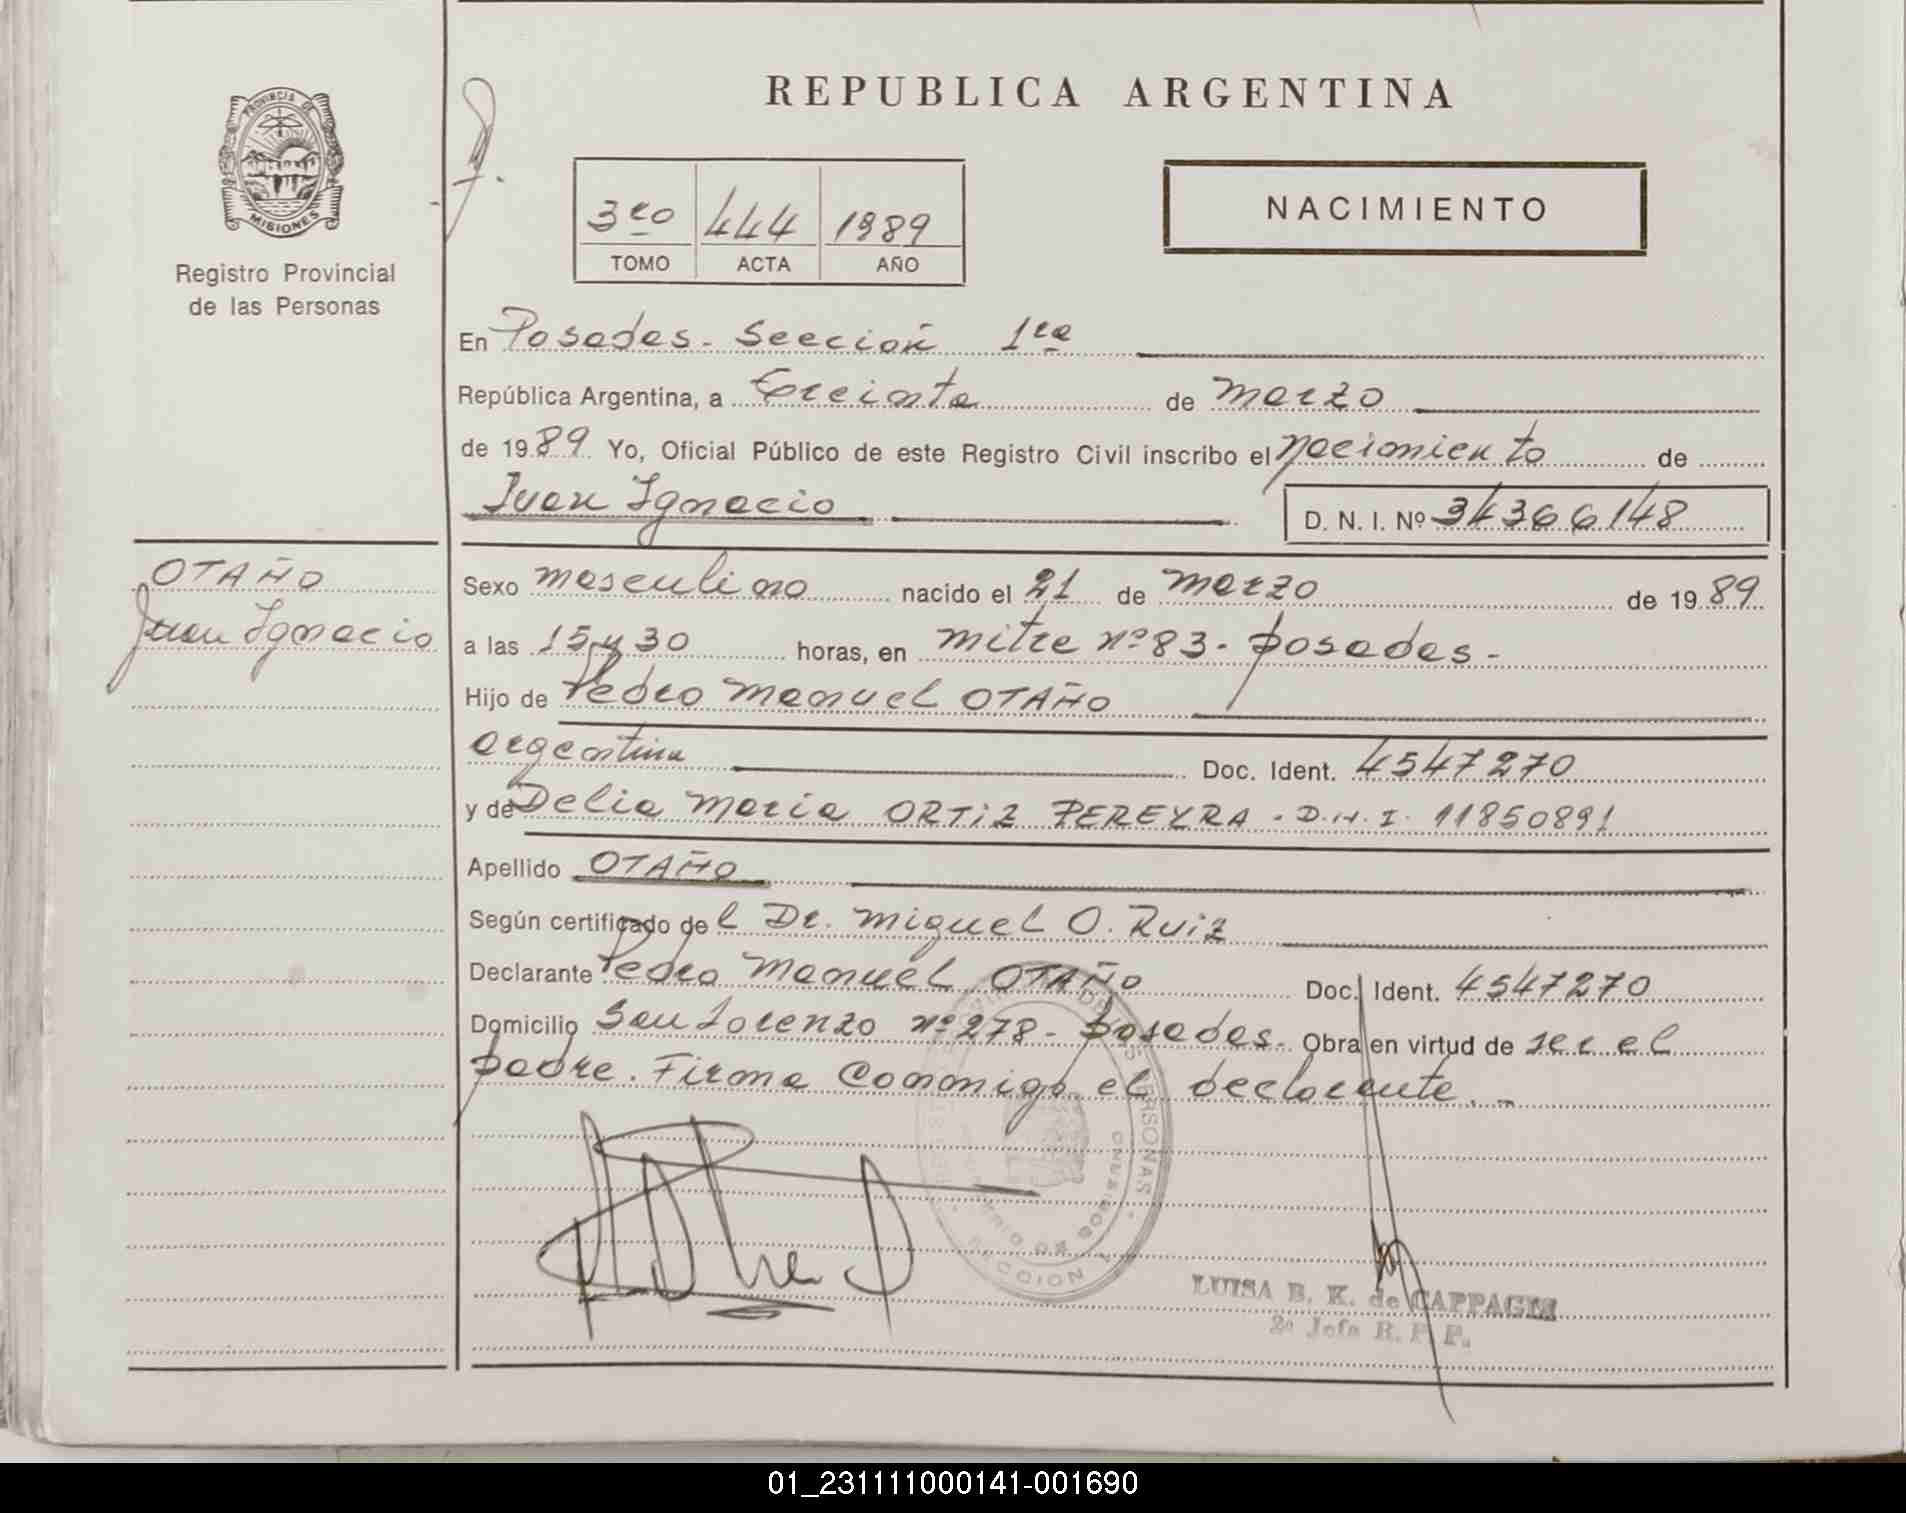 REPUBLICA ARGENTINA
PROVINCIA DE
MISIONES
Registro Provincial
de las Personas
3ro 444 1989
TOMO ACTA AÑO
NACIMIENTO
En Posadas - Sección 1ra
República Argentina, a treinta de marzo
de 1989. Yo, Oficial Público de este Registro Civil inscribo el nacimiento de
Juan Ignacio D. N. I. Nº 34366148
OTAÑO
Juan Ignacio
Sexo masculino nacido el 21 de marzo de 1989
a las 15 y 30 horas, en mitre nº 83 - posadas -
Hijo de Pedro Manuel OTAÑO
argentina Doc. Ident. 4547270
y de Delia Maria ORTIZ PEREYRA - D.N.I. 11850891
Apellido OTAÑO
Según certificado del Dr. Miguel O. Ruiz
Declarante Pedro Manuel OTAÑO Doc. Ident. 4547270
Domicilio San Lorenzo nº 278 - posadas - Obra en virtud de ser el
padre. Firma Conmigo el declarante. -
SECCION 1
LUISA B. K. de
2ª Jefa R. P. P.
01_231111000141-001690